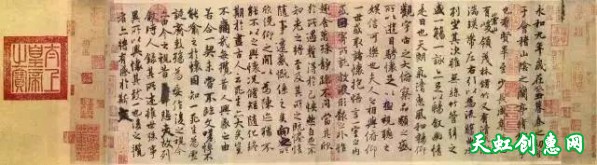 永和九年歲在癸丑暮春之初會
于會稽山陰之蘭亭脩稧事
也羣賢畢至少長咸集此地
有崇山峻領茂林脩竹又有清流激
湍暎帶左右引以為流觴曲水
列坐其次雖無絲竹管弦之
盛一觴一詠亦足以暢敘幽情
是日也天朗氣清惠風和暢仰
觀宇宙之大俯察品類之盛
所以遊目騁懷足以極視聽之
娛信可樂也夫人之相與俯仰
一世或取諸懷抱悟言一室之內
或因寄所託放浪形骸之外雖
趣舍萬殊靜躁不同當其欣
於所遇蹔得於己怏然自足不
知老之將至及其所之既惓情
隨事遷感慨係之矣向之所
欣俛仰之閒以為陳迹猶不
能不以之興懷況脩短隨化終
期於盡古人云死生亦大矣豈
不痛哉每攬昔人興感之由
若合一契未嘗不臨文嗟悼不
能喻之於懷固知一死生為虛
誕齊彭殤為妄作後之視今
亦由今之視昔悲夫故列
敘時人錄其所述雖世殊事
異所以興懷其致一也後之攬
者亦將有感於斯文
太上皇帝之寶
天虹创意网